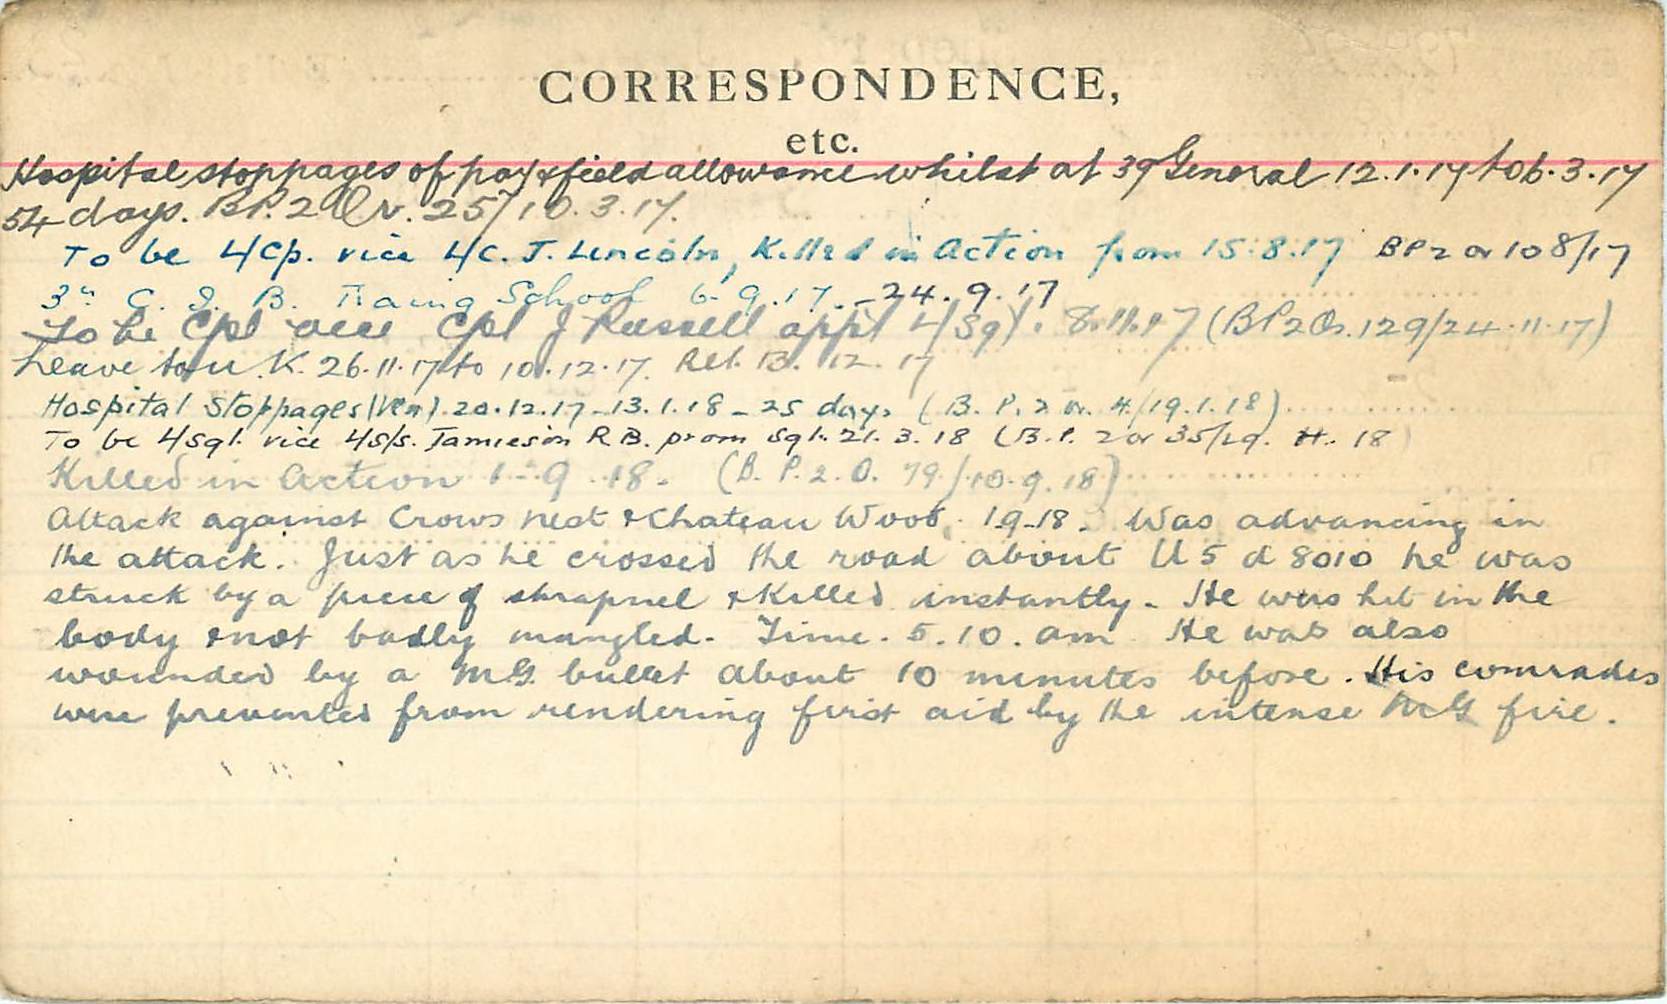 CORRESPONDENCE,
etc.
Hospital stoppages of pay & field allowance whilst at 39 General 12.1.17 to 6.3.17
54 days. B.P.2. Or. 25/10.3.17.
To be L/Cp. vice L/C. J. Lincoln, Killed in Action from 15.8.17 BP2 or 108/17
3rd C. I. B. Traing School 6.9.17. - 24.9.17
To be Cpl vice Cpl J Russell appt L/Sgt. 8.11.17 (BP2 Or. 129/24.11.17)
Leave to U.K. 26.11.17 to 10.12.17. Ret. 13.12.17
Hospital Stoppages (Ven). 20.12.17 - 13.1.18 - 25 days (B.P.2 or. 4/19.1.18)
To be L/Sgt. vice L/S/s. Jamieson R B. prom Sgt. 21.3.18 (B.P. 2 or 35/29. 4. 18)
Killed in Action 1-9-18. (B.P.2.O. 79/10.9.18)
Attack against Crows nest & Chateau Wood. 1.9.18. Was advancing in
the attack. Just as he crossed the road about U 5 d 8010 he was
struck by a piece of shrapnel & killed instantly. He was hit in the
body & not badly mangled. Time. 5.10. am He was also
wounded by a MG. bullet about 10 minutes before. His comrades
were prevented from rendering first aid by the intense MG fire.